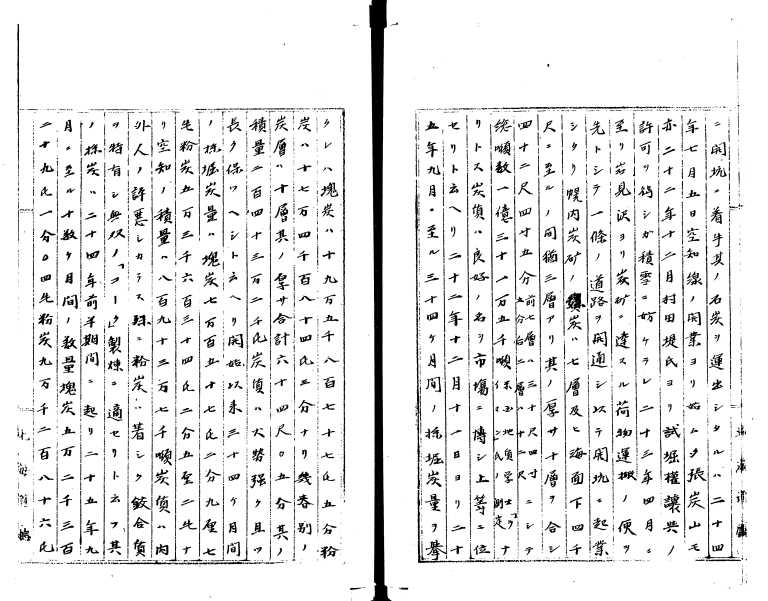 ニ開坑ニ着手其ノ石炭ヲ運出シタルハ二十四
年七月五日空知線ノ開業ヨリ始ムタ張炭山モ
亦二十二年十二月村田堤氏ヨリ試堀權讓與ノ
許可ヲ得シガ積雪ニ妨ケラレ二十三年四月ニ
至リ岩見沢ヨリ炭矿ニ達スル荷物運搬ノ便ヲ
先トシテ一條ノ道路ヲ開通シ以テ開坑ニ起業
シタリ幌内炭矿ノ炭ハ七層及ヒ海面下四千
尺ニ至ルノ間猶三層アリ其ノ厚サ十層ヲ合シ
四十二尺四寸五分前七層ハ三十尺四寸五分后三層ハ十二尺ニシテ
總噸数一億三千一万五千噸ナ
リトス炭質ハ良好ノ名ヲ市塲ニ博シ上等ニ位
セリト云ヘリ二十二年十二月十一日ヨリ二十
五年九月ニ至ル三十四ケ月間ノ採堀炭量ヲ擧
クレハ塊炭ハ十九万五千八百七十七瓲五分粉
炭ハ十七万四千百八十四瓲三分ナリ幾春別ノ
炭層ハ十層其ノ厚サ合計六十四尺〇五分其ノ
積量二百四十三万二千瓲炭質ハ大槩强ク且ツ
長ク保ツヘシト云ヘリ開始以来三十四ケ月間
ノ採堀炭量ハ塊炭七万百五十七瓲二分九厘七
毛粉炭五万三千六百三十四瓲二分五厘二毛ナ
リ空知ノ積量ハ八百九十三万七千噸炭質ハ内
外人ノ許悪シカラス殊ニ粉炭ハ著シク餃合質
ヲ特有シ無双ノ「コーク」製煉ニ適セリト云フ其
ノ採炭ハ二十四年前半期間ニ起リ二十五年九
月ニ至ル十数ケ月間ノ数量塊炭五万二千三百
二十九瓲一分〇四毛粉炭九万千二百八十六瓲